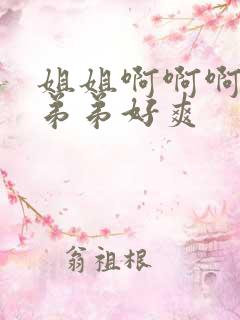 姐姐啊啊啊
弟弟好爽
翁祖根